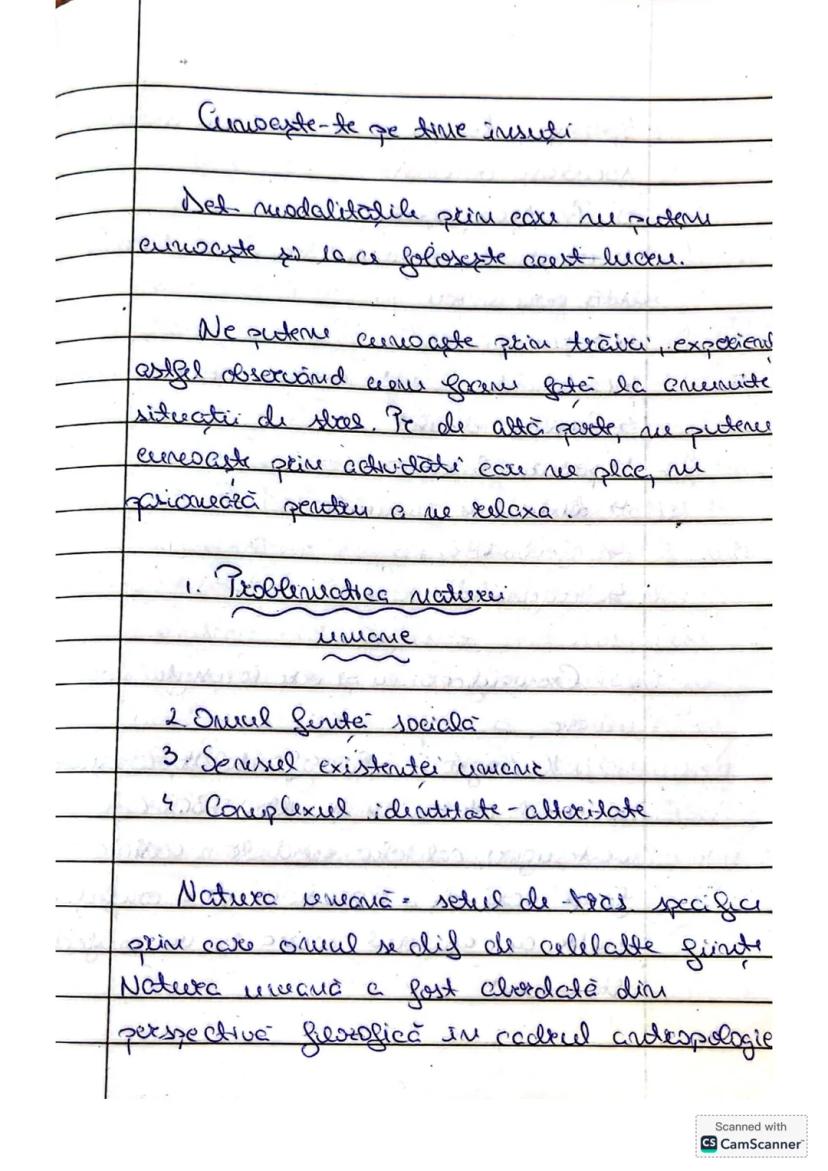 Cunoaște-te pe tine însuți
Det modalitățile prin care ne putem
cunoaște și la ce folosește acest lucru.
Ne putem cunoaște prin trăiri, experienț
astfel observând cum facem față la anumite
situații de stres. Pe de altă parte, ne putem
cunoaște prin activități care ne plac, ne
pasionează pentru a ne relaxa.
1. Problematica naturii
umane
2. Omul ființă socială
3. Sensul existenței umane
4. Complexul identitate-alteritate
Natura umană = setul de trăs. specifice
prin care omul se dif de celelalte ființe
Natura umană a fost abordată din
perspectivă filozofică în cadrul antropologie
Scanned with
CS CamScanner